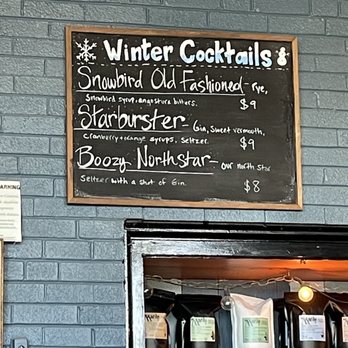 Winter Cocktails
Snowbird Old Fashioned - rye,
Snowbird syrup, angostura bitters.
$9
Starburster - Gin, Sweet vermouth,
cranberry + orange syrups, Seltzer.
$9
Boozy Northstar - our north star
Seltzer with a shot of Gin.
$8